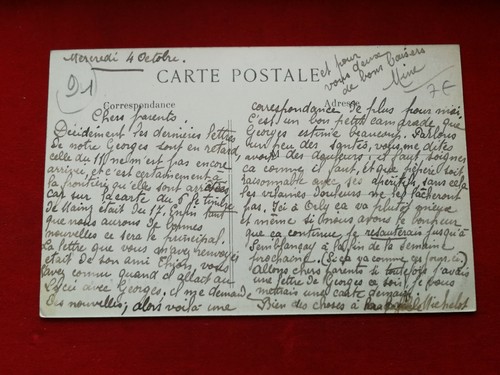 Mercredi 4 Octobre.
91
CARTE POSTALE
Correspondance
Chers parents.
Décidément ses dernières lettres
de notre Georges sont en retard
celle du 11 ne m'est pas encore
arrivée, et c'est certainement à
la frontière qu'elles sont arrêtées
car sur la carte du 5 le timbre
de était du 17. Enfin tant
que nous aurons de bonnes
nouvelles ce sera le principal.
La lettre que vous m'avez renvoyée
était de son ami vous
l'avez connu quand il allait au
Lycée avec Georges, il me demande
des nouvelles; alors voilà une
et pour
vous deux
de bons baisers
Mine
7€
Adresse
correspondance de plus pour moi,
C'est un bon petit camarade que
Georges estime beaucoup. Parlons
un peu des santés, vous me dites
avoir des douleurs, il faut soigner
ça comme il faut, et que pépère soit
raisonnable avec ses sans cela
ses vilaines douleurs ne se fâcheront
pas. Ici à Orly ça va plutôt mieux
et même si nous avons le bonheur
que ça continue je resterais jusqu'à
Semblançay à la fin de la semaine
prochaine. (Si ça va comme ces jours-ci)
Allons chers parents si toutefois j'avais
une lettre de Georges ce soir, je vous
mettrais une carte demain.
Bien des choses à Michelot